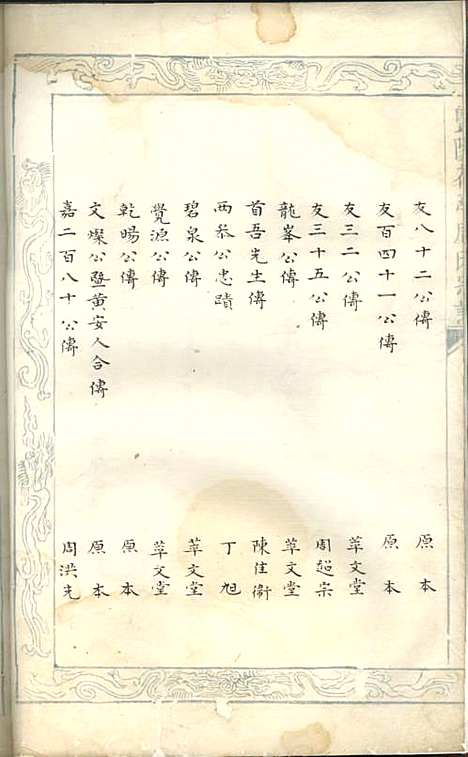 友八十二公傳 原本
友百四十一公傳 原本
友三二公傳 萃文堂
友三十五公傳 周超宗
龍峯公傳 萃文堂
首吾先生傳 陳佳衛
西泰公忠蹟 丁旭
碧泉公傳 萃文堂
覺源公傳 萃文堂
乾暘公傳 原本
文燦公暨黄安人合傳 原本
嘉二百八十公傳 周洪先